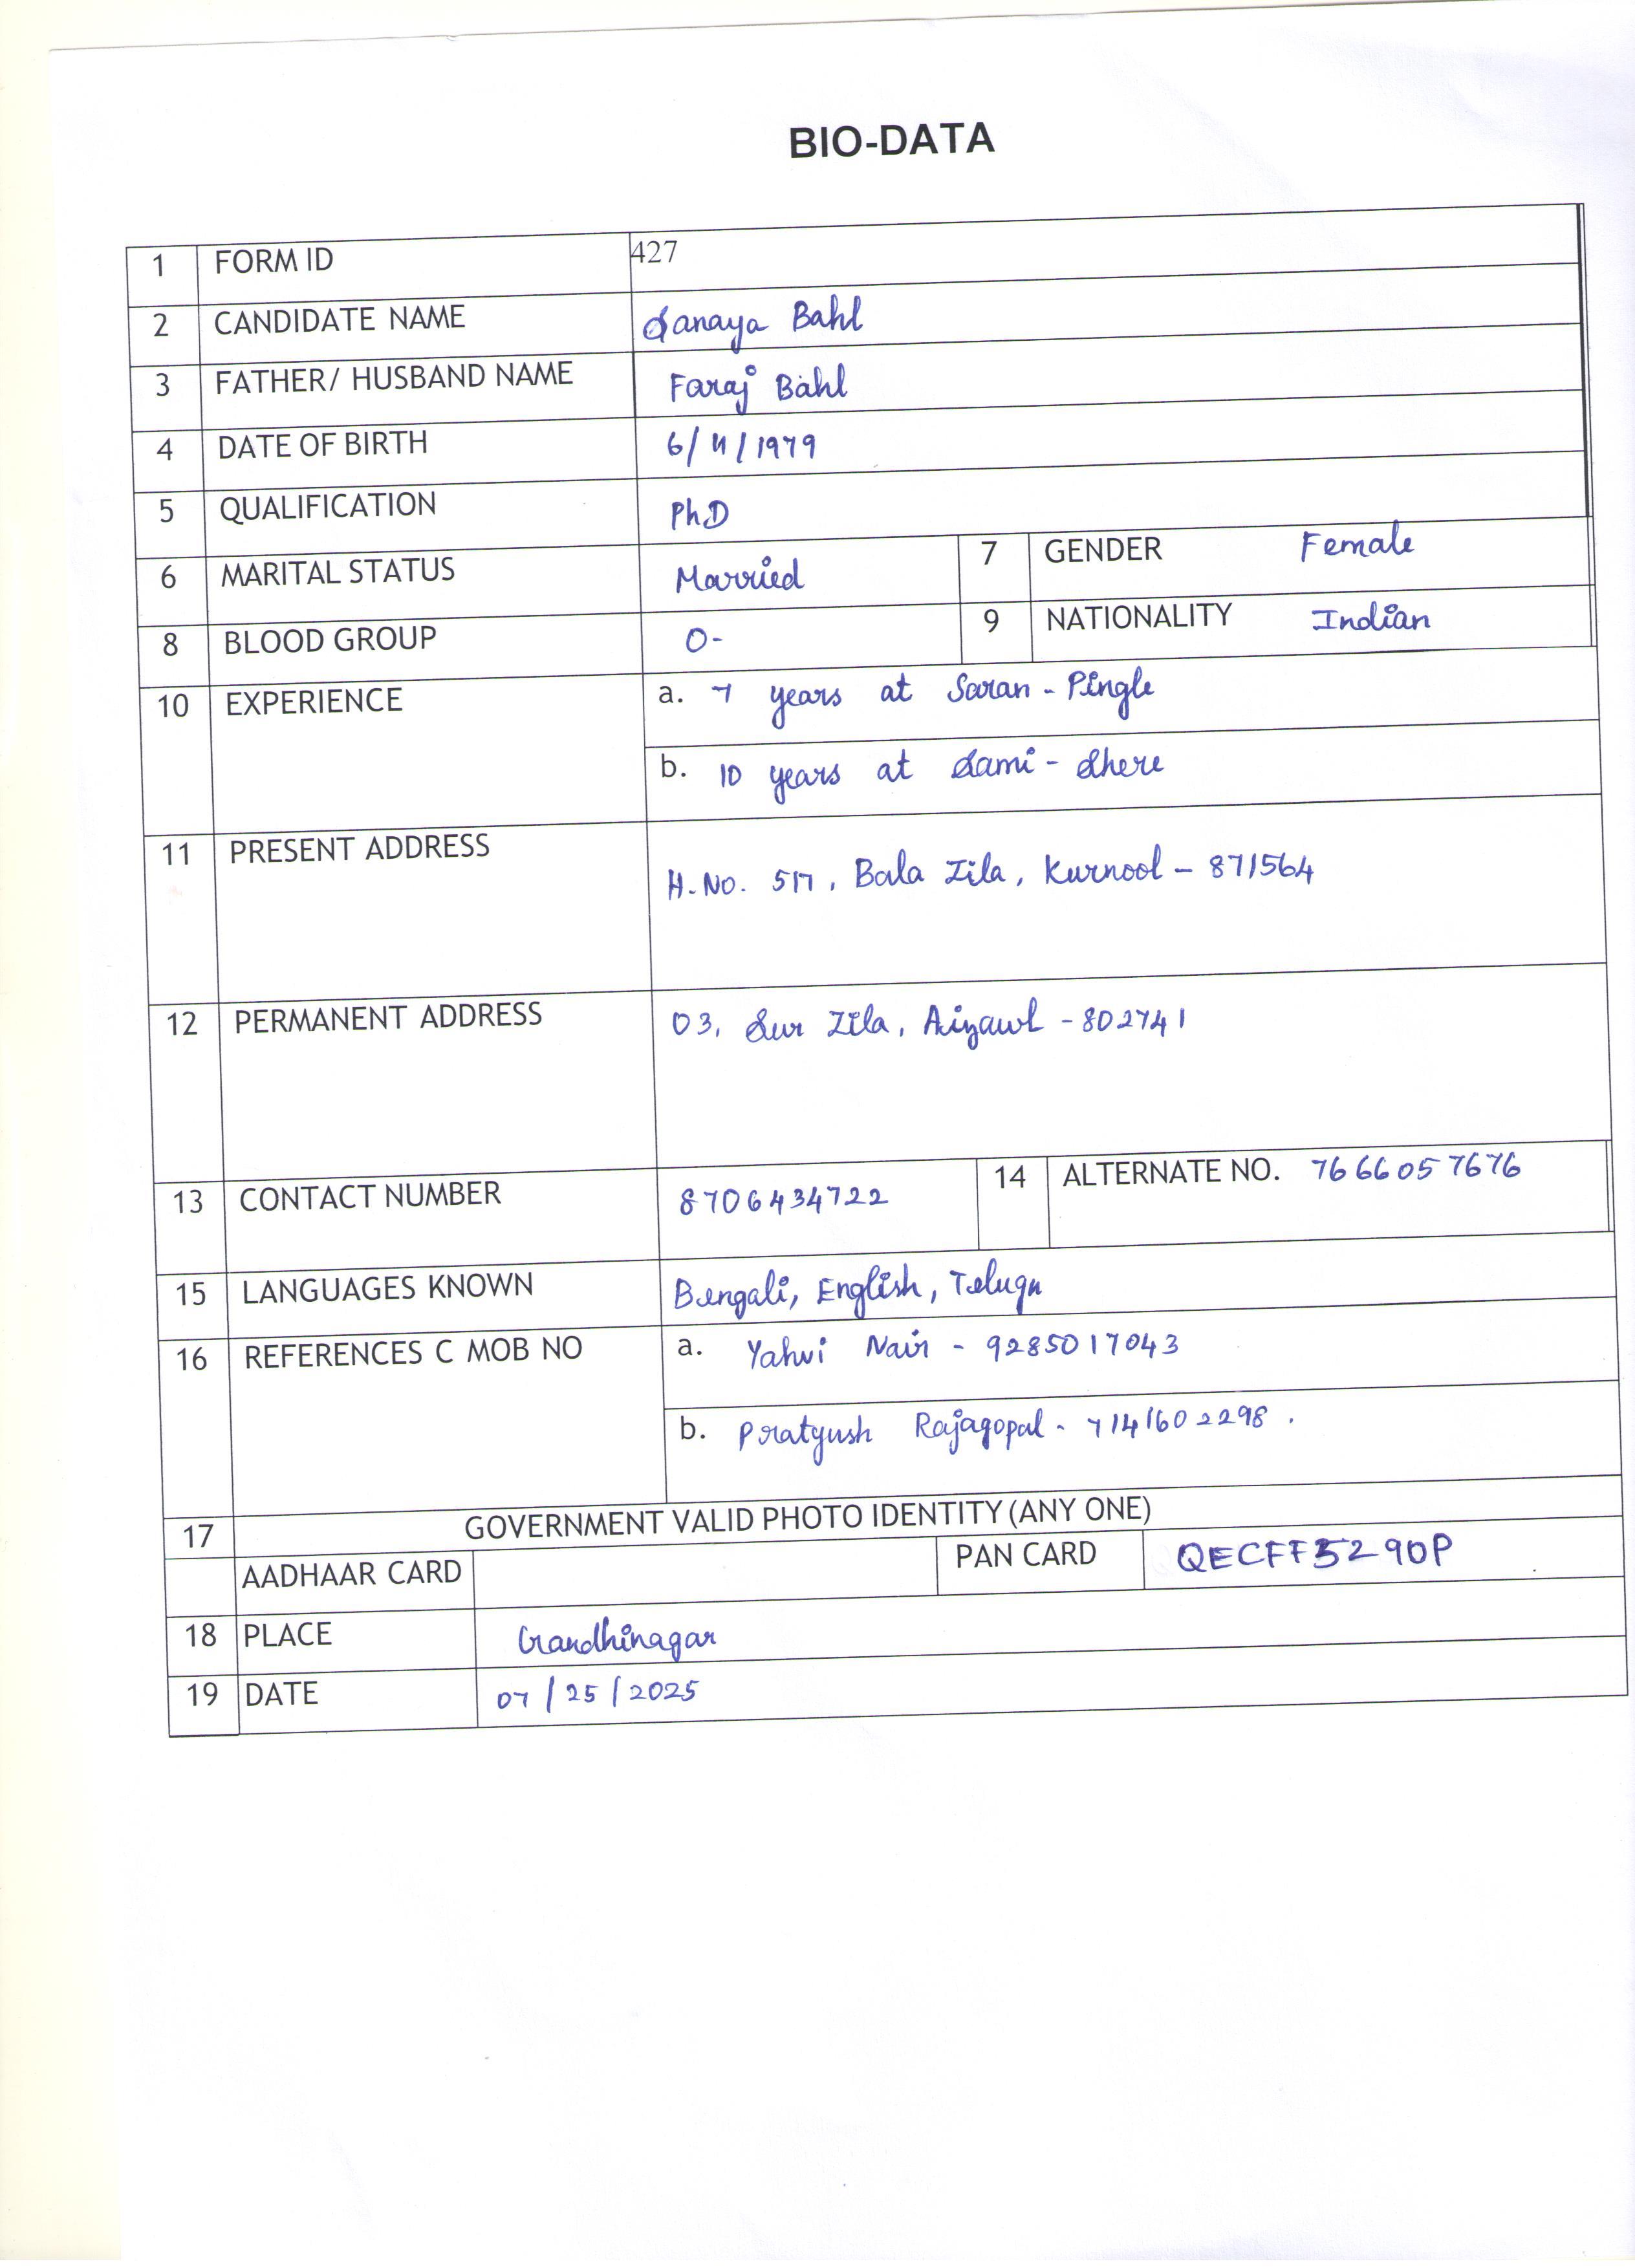 BIO-DATA
1 FORM ID 427
2 CANDIDATE NAME Sanaya Bahl
3 FATHER/ HUSBAND NAME Faraj Bahl
4 DATE OF BIRTH 6/11/1979
5 QUALIFICATION PhD
6 MARITAL STATUS Married 7 GENDER Female
8 BLOOD GROUP O- 9 NATIONALITY Indian
10 EXPERIENCE a. 7 years at Saran - Pingle
b. 10 years at Sami - Shere
11 PRESENT ADDRESS
H.No. 517, Bala Zila, Kurnool - 871564
12 PERMANENT ADDRESS 03, Sur Zila, Aizawl - 802741
13 CONTACT NUMBER 8706434722 14 ALTERNATE NO. 7666057676
15 LANGUAGES KNOWN Bengali, English, Telugu
16 REFERENCES C MOB NO a. Yahvi Nair - 9285017043
b. Pratyush Rajagopal - 7141602298.
17 GOVERNMENT VALID PHOTO IDENTITY (ANY ONE)
AADHAAR CARD PAN CARD QECFF5290P
18 PLACE Gandhinagar
19 DATE 07/25/2025